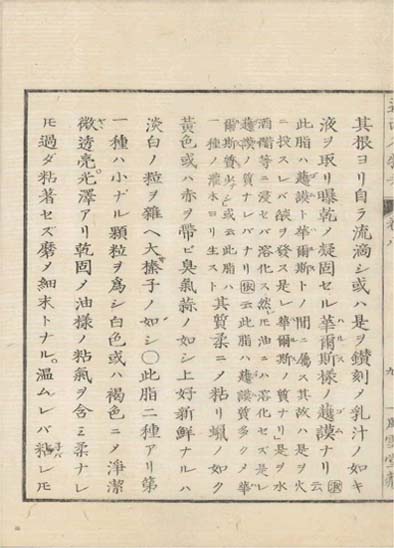 其根ヨリ自ラ流滴シ或ハ是ヲ鑚刻メ乳汁ノ如キ
液ヲ取リ曝乾ノ凝固セル華爾斯樣ノ護謨ナリ 云
此脂ハ護謨ト華爾斯トノ間ニ屬ス其故ハ是ヲ火
ニ投スレバ燄ヲ發ス是レ華爾斯ノ質ナリ是ヲ水
酒醋等ニ浸セバ溶化ス然モ油ニハ溶化セズ是レ
護謨ノ質ナレバナリ 云此脂ハ護謨質多クメ華
爾斯質少シ或云此脂ハ
一種ノ灌木ヨリ生スト 其質柔ニメ粘リ蠟ノ如ク
黃色或ハ赤ヲ帶ビ臭氣蒜ノ如シ上好新鮮ナルハ
淡白ノ粒ヲ雜ヘ大榛子ノ如シ〇此脂二種アリ第
一種ハ小ナル顆粒ヲ爲シ白色或ハ褐色ニメ淨潔
微透亮光澤アリ乾固メ油樣ノ粘氣ヲ含ミ柔ナレ
モ過ダ粘著セズ磨メ細末トナル。温ムレバ粘レモ